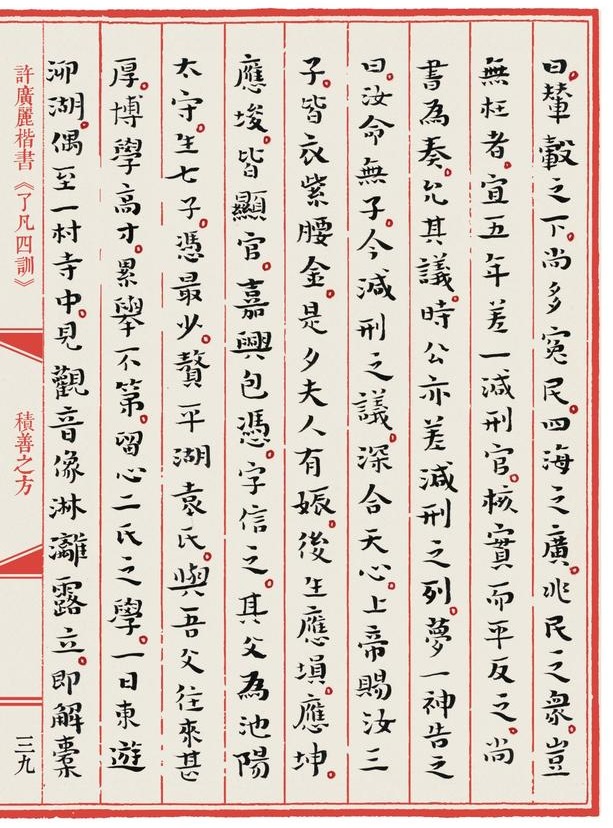 曰。輦轂之下。尚多冤民。四海之廣。兆民之眾。豈
無枉者。宜五年差一減刑官。核實而平反之。尚
書為奏。允其議。時公亦差減刑之列。夢一神告之
曰。汝命無子。今減刑之議。深合天心。上帝賜汝三
子。皆衣紫腰金。是夕夫人有娠。後生應塤。應坤。
應埈。皆顯官。嘉興包憑。字信之。其父為池陽
太守。生七子。憑最少。贅平湖袁氏。與吾父往來甚
厚。博學高才。累舉不第。留心二氏之學。一日東遊
泖湖。偶至一村寺中。見觀音像淋灕露立。即解橐
許廣麗楷書《了凡四訓》
積善之方
三九